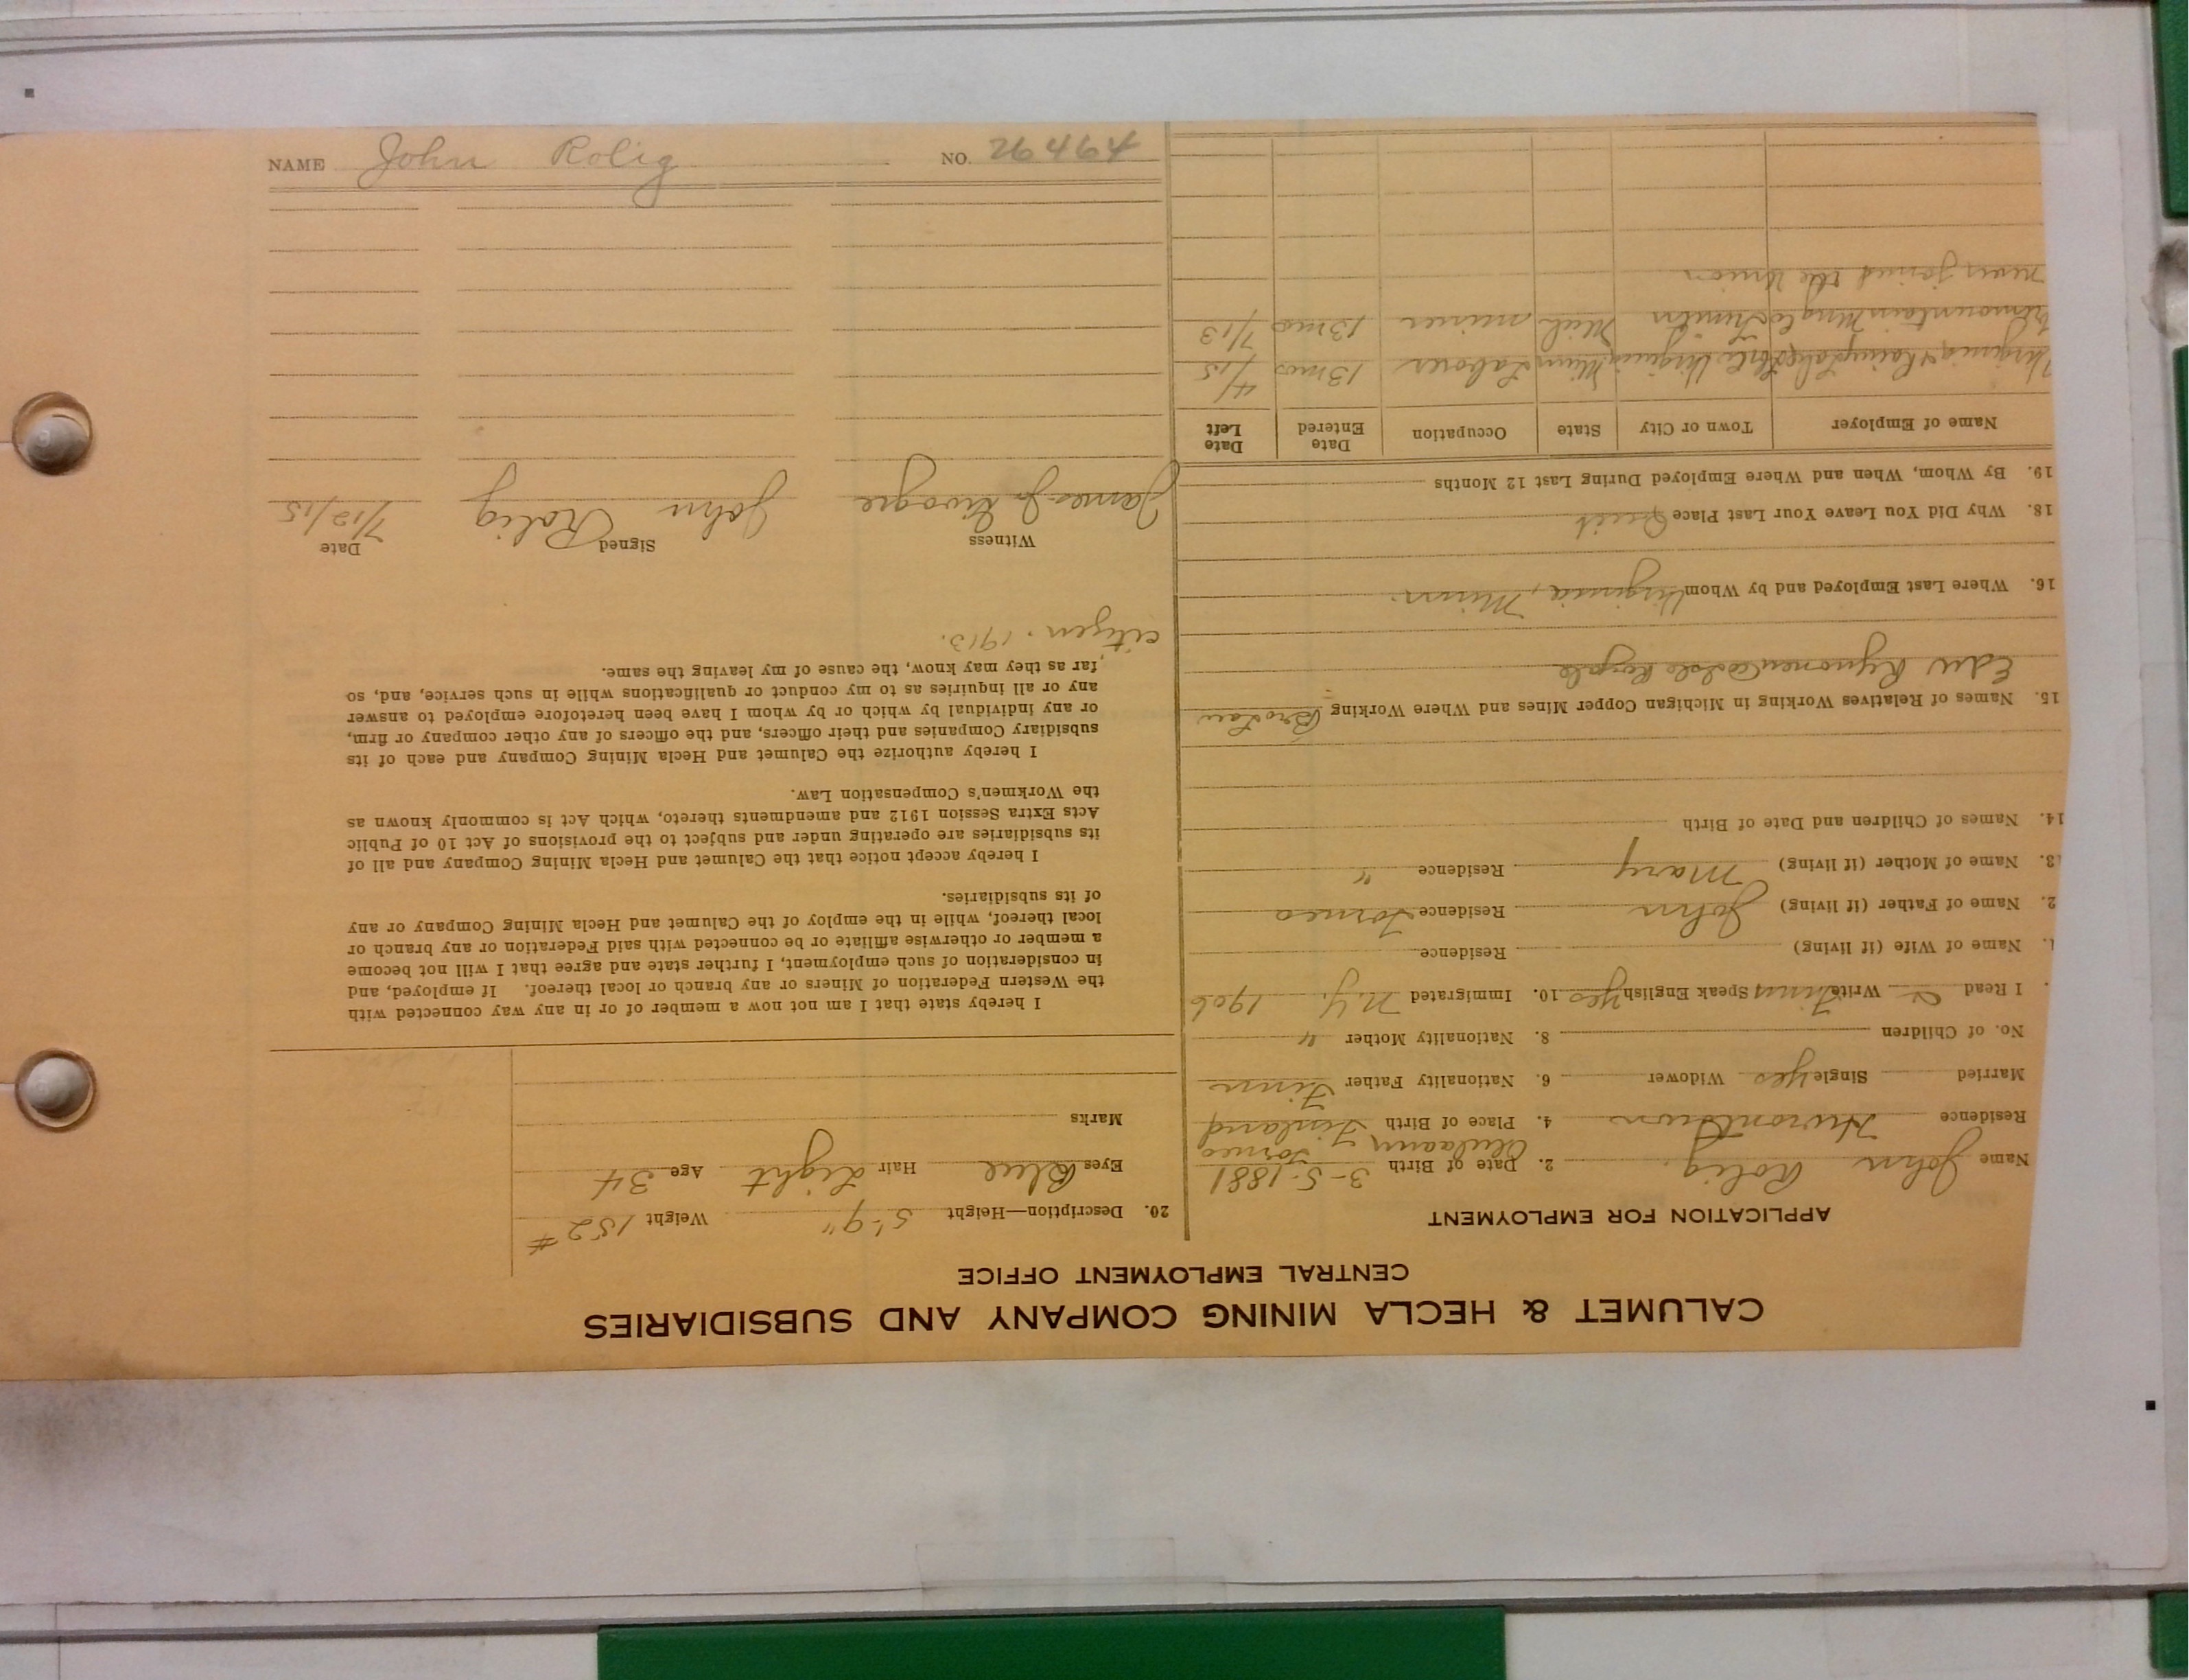 CALUMET & HECLA MINING COMPANY AND SUBSIDIARIES
CENTRAL EMPLOYMENT OFFICE
APPLICATION FOR EMPLOYMENT
Name John Rolig. 2. Date of Birth 3-5-1881
Torneo
Residence Hurontown 4. Place of Birth Finland
Married Single yes Widower 6. Nationality Father Finn
No. of Children 8. Nationality Mother "
I Read & Write Finnish Speak English yes 10. Immigrated N.Y. 1906
1. Name of Wife (if living) Residence
2. Name of Father (if living) John Residence Torneo
3. Name of Mother (if living) Mary Residence "
14. Names of Children and Date of Birth
15. Names of Relatives Working in Michigan Copper Mines and Where Working
Edw
16. Where Last Employed and by Whom Virginia, Minn.
18. Why Did You Leave Your Last Place Quit
19. By Whom, When and Where Employed During Last 12 Months
Name of Employer Town or City State Occupation Date Entered Date Left
Virginia & Rainy Lake Virginia Minn Laborer 13 mos 4/15
Trimountain Mng Co Mich miner 13 mos 7/13
never joined the Union
20. Description—Height 5'-9" Weight 152#
Eyes Blue Hair Light Age 34
Marks
I hereby state that I am not now a member of or in any way connected with
the Western Federation of Miners or any branch or local thereof. If employed, and
in consideration of such employment, I further state and agree that I will not become
a member or otherwise affiliate or be connected with said Federation or any branch or
local thereof, while in the employ of the Calumet and Hecla Mining Company or any
of its subsidiaries.
I hereby accept notice that the Calumet and Hecla Mining Company and all of
its subsidiaries are operating under and subject to the provisions of Act 10 of Public
Acts Extra Session 1912 and amendments thereto, which Act is commonly known as
the Workmen's Compensation Law.
I hereby authorize the Calumet and Hecla Mining Company and each of its
subsidiary Companies and their officers, and the officers of any other company or firm,
or any individual by which or by whom I have been heretofore employed to answer
any or all inquiries as to my conduct or qualifications while in such service, and, so
far as they may know, the cause of my leaving the same.
citizen. 1913.
Witness Signed Date
James J. John Rolig 7/12/15
NAME John Rolig NO. 26464